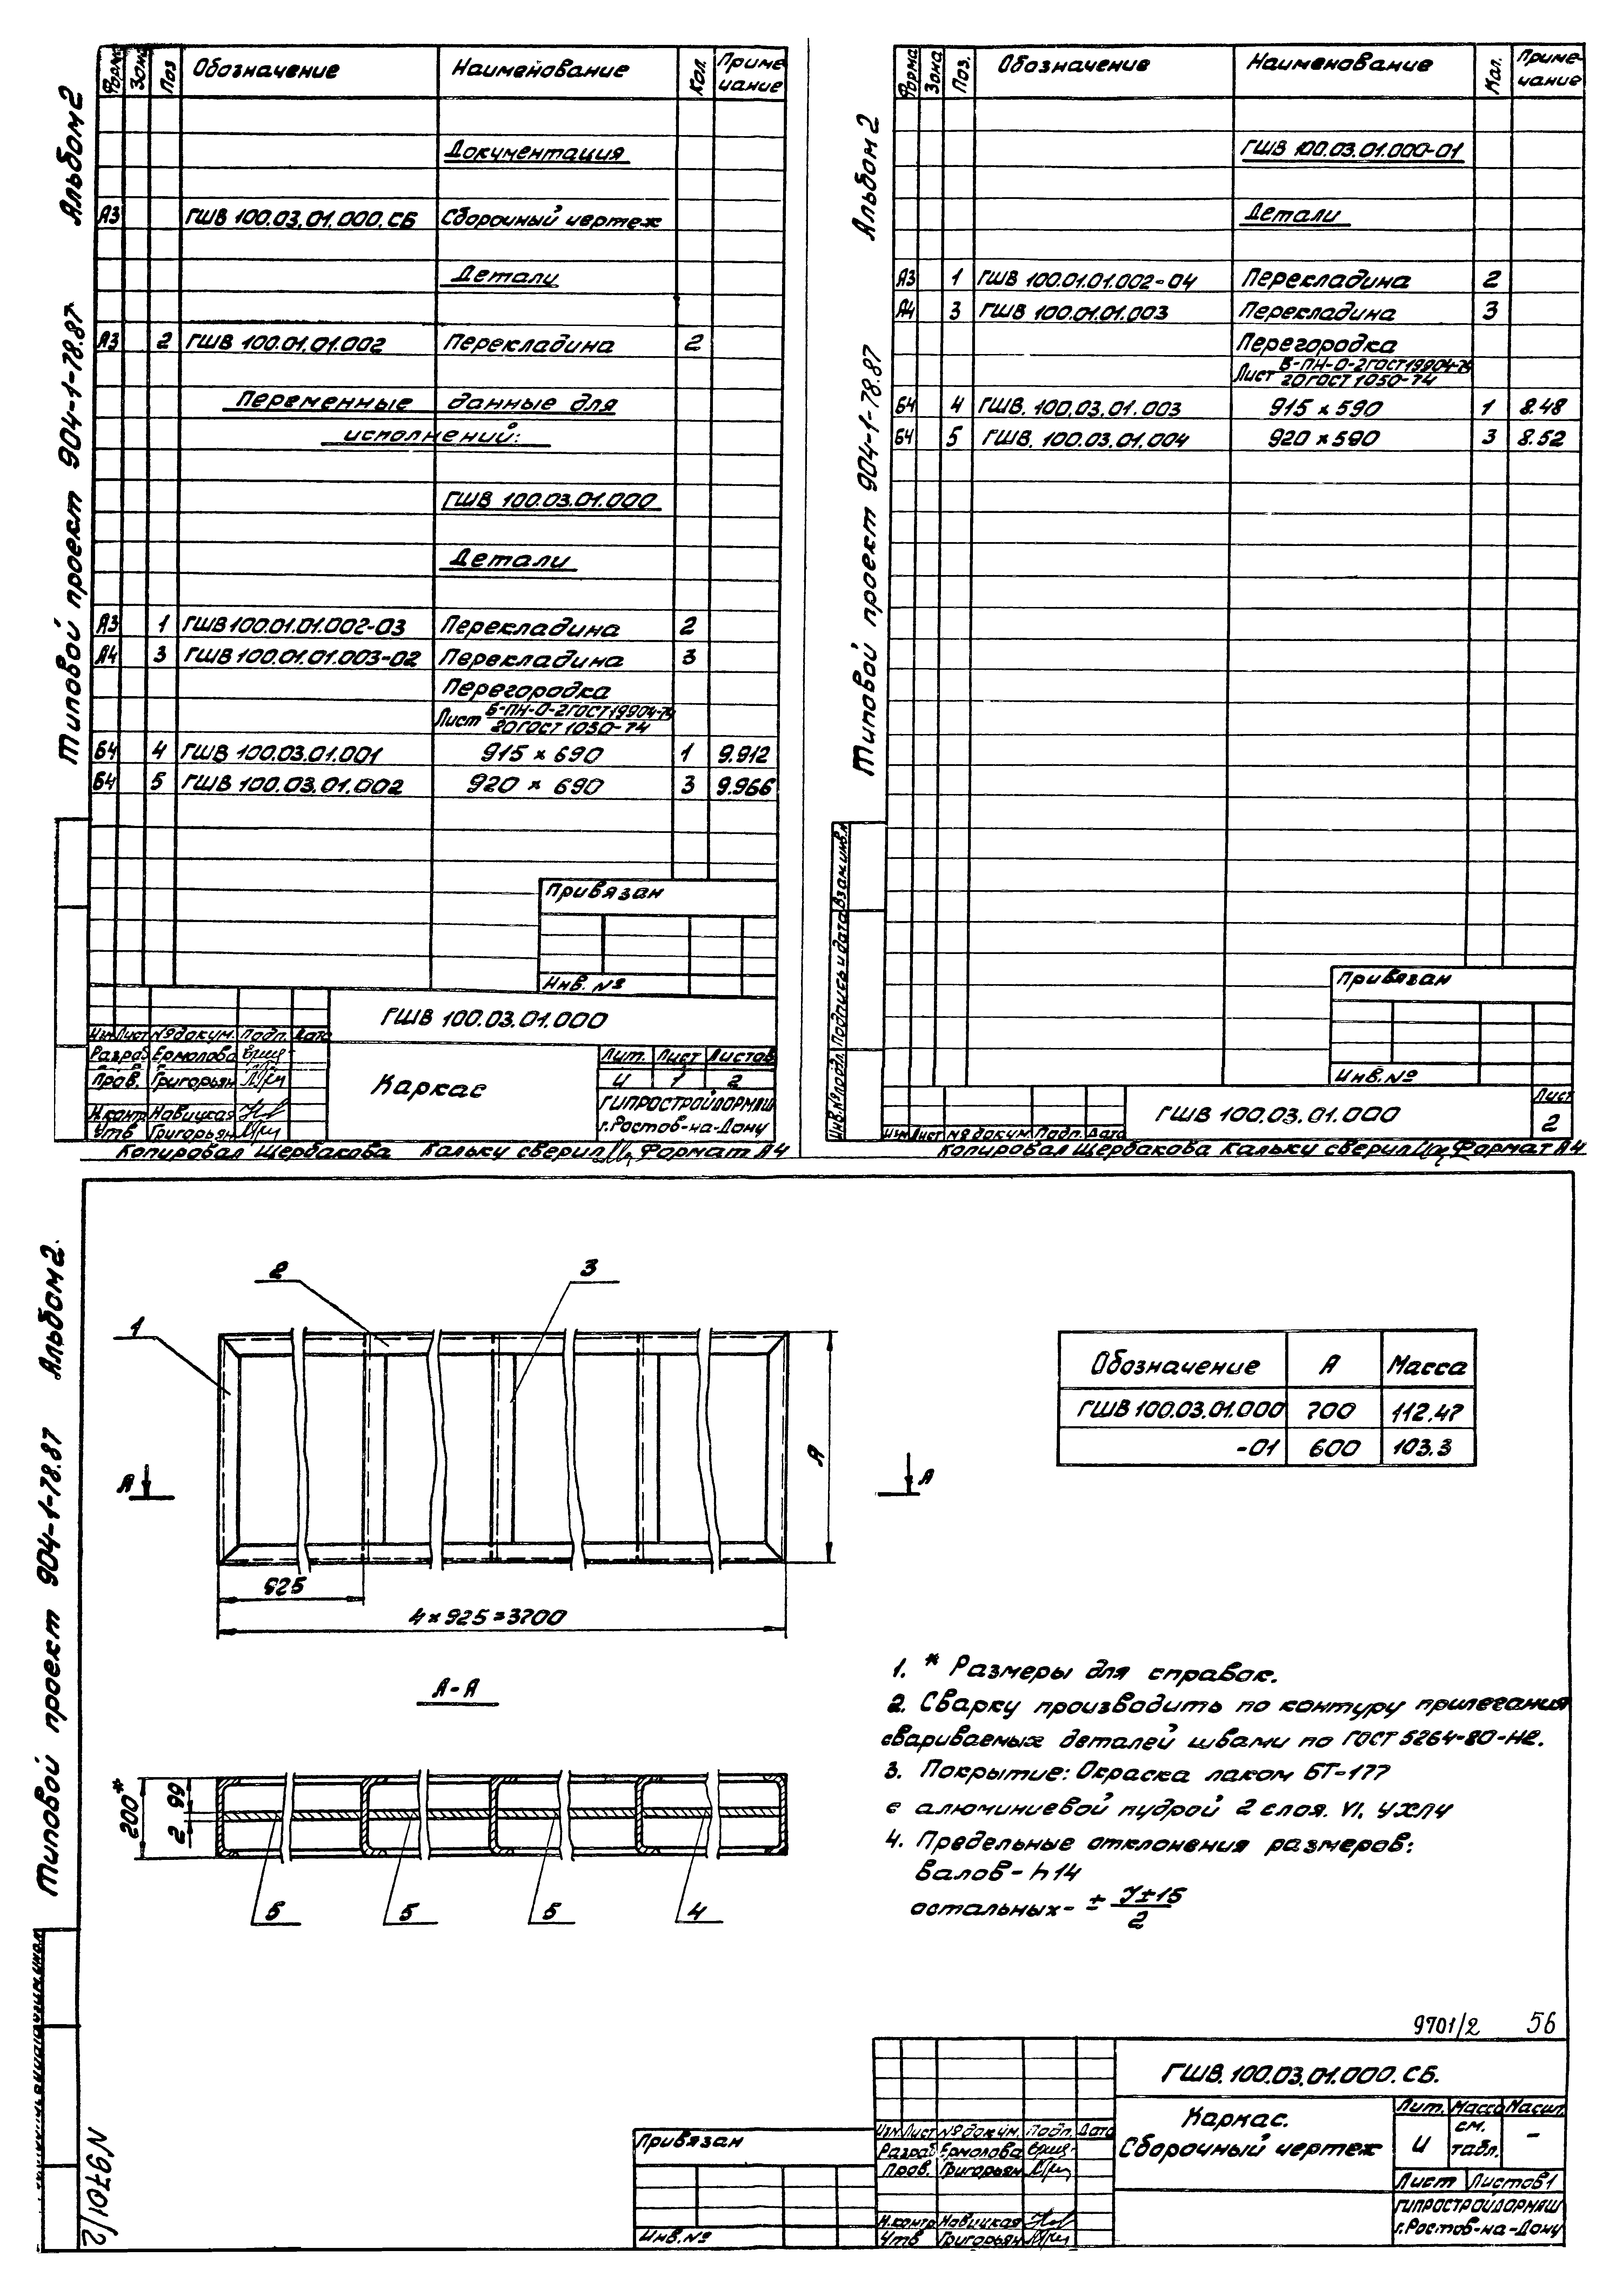 Альбом 2
Типовой проект 904-1-78.87
Форма Зона Поз Обозначение Наименование Кол. Примечание
Документация
А3 ГШВ 100.03.01.000.СБ Сборочный чертеж
Детали
А3 2 ГШВ 100.01.01.002 Перекладина 2
Переменные данные для
исполнений:
ГШВ 100.03.01.000
Детали
А3 1 ГШВ 100.01.01.002-03 Перекладина 2
А4 3 ГШВ 100.01.01.003-02 Перекладина 3
Перегородка
Лист Б-ПН-О-2 ГОСТ 19904-74
20 ГОСТ 1050-74
Б4 4 ГШВ 100.03.01.001 915 × 690 1 9.912
Б4 5 ГШВ 100.03.01.002 920 × 690 3 9.966
Привязан
Инв. №
ГШВ 100.03.01.000
Изм Лист № докум. Подп. Дата
Разраб Ермолова
Пров. Григорьян
Н.контр Новицкая
Утв Григорьян
Каркас
Лит. Лист Листов
И 1 2
ГИПРОСТРОЙДОРМАШ
г.Ростов-на-Дону
Копировал Щербакова Кальку сверил Формат А4
Альбом 2
Типовой проект 904-1-78.87
Форма Зона Поз. Обозначение Наименование Кол. Примечание
ГШВ 100.03.01.000-01
Детали
А3 1 ГШВ 100.01.01.002-04 Перекладина 2
А4 3 ГШВ 100.01.01.003 Перекладина 3
Перегородка
Лист Б-ПН-О-2 ГОСТ 19904-74
20 ГОСТ 1050-74
Б4 4 ГШВ. 100.03.01.003 915 × 590 1 8.48
Б4 5 ГШВ. 100.03.01.004 920 × 590 3 8.52
Инв.№ подл. Подпись и дата Взам.инв.№
Привязан
Инв.№
Изм Лист № докум Подп. Дата
ГШВ 100.03.01.000
Лист
2
Копировал Щербакова Кальку сверил Формат А4
Альбом 2.
Типовой проект 904-1-78.87
1
2
3
А
А
А
925
4 × 925 = 3700
Обозначение А Масса
ГШВ 100.03.01.000 700 112.47
-01 600 103.3
А-А
200*
99
2
5
5
5
4
1. * Размеры для справок.
2. Сварку производить по контуру прилегания
свариваемых деталей швами по ГОСТ 5264-80-Н2.
3. Покрытие: Окраска лаком БТ-177
с алюминиевой пудрой 2 слоя. VI. УХЛ4
4. Предельные отклонения размеров:
валов - h14
остальных - ±
2
9701/2 56
ГШВ. 100.03.01.000.СБ.
Изм Лист № докум. Подп. Дата
Разраб Ермолова
Пров. Григорьян
Н.контр Новицкая
Утв Григорьян
Каркас.
Сборочный чертеж
Лит. Масса Масшт.
И см. табл. -
Лист Листов 1
ГИПРОСТРОЙДОРМАШ
г.Ростов-на-Дону
Привязан
Инв.№
N9701/2